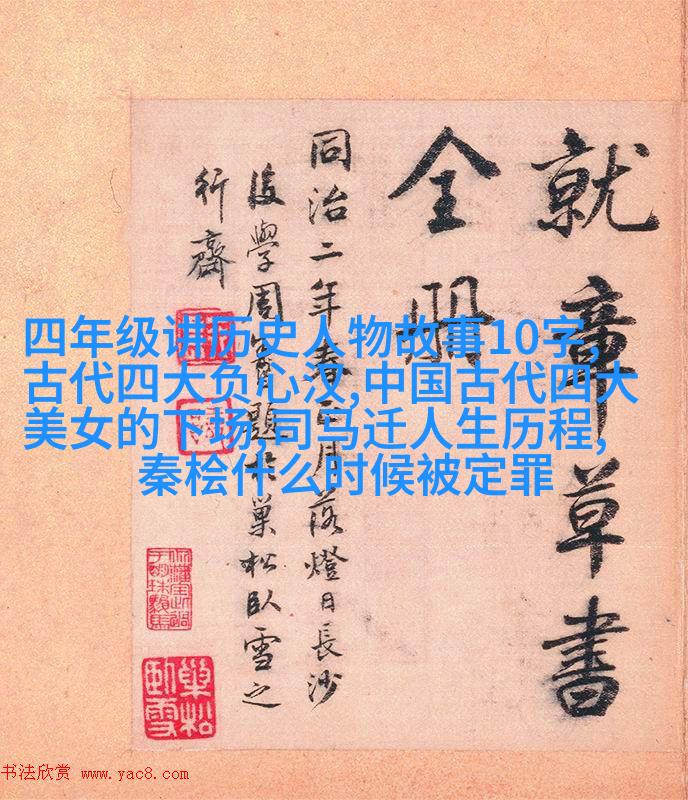 就章草書
全册
同治二年春正月落燈日長沙
後學周題於巢松臥雪之
行齋
四年级讲历史人物故事10字,
古代四大负心汉,中国古代四大
美女的下场,司马迁人生历程,
秦桧什么时候被定罪
巢松
臥雪
书法欣赏 www.yac8.com